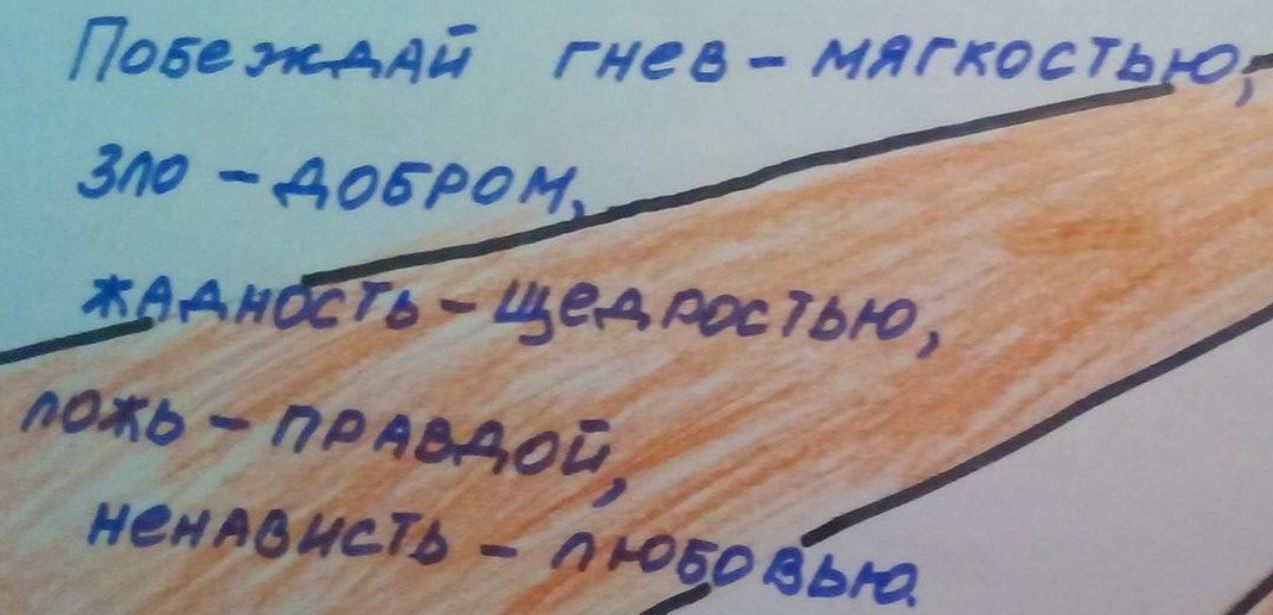 Побеждай гнев - мягкостью,
зло - добром,
жадность - щедростью,
ложь - правдой,
ненависть - любовью.